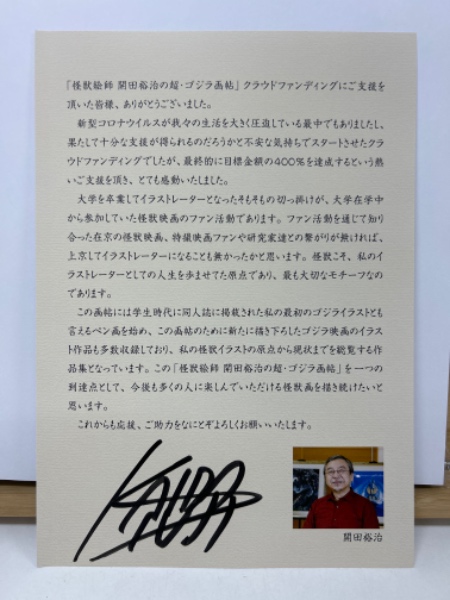 「怪獣絵師 開田裕治の超・ゴジラ画帖」クラウドファンディングにご支援を
頂いた皆様、ありがとうございました。
新型コロナウイルスが我々の生活を大きく圧迫している最中でもありましたし、
果たして十分な支援が得られるのだろうかと不安な気持ちでスタートさせたクラ
ウドファンディングでしたが、最終的に目標金額の400%を達成するという熱
いご支援を頂き、とても感動いたしました。
大学を卒業してイラストレーターとなったそもそもの切っ掛けが、大学在学中
から参加していた怪獣映画のファン活動であります。ファン活動を通じて知り
合った在京の怪獣映画、特撮映画ファンや研究家達との繋がりが無ければ、
上京してイラストレーターになることも無かったかと思います。怪獣こそ、私のイ
ラストレーターとしての人生を歩ませてた原点であり、最も大切なモチーフなの
であります。
この画帖には学生時代に同人誌に掲載された私の最初のゴジライラストとも
言えるペン画を始め、この画帖のために新たに描き下ろしたゴジラ映画のイラス
ト作品も多数収録しており、私の怪獣イラストの原点から現状までを総覧する作
品集となっています。この「怪獣絵師 開田裕治の超・ゴジラ画帖」を一つの
到達点として、今後も多くの人に楽しんでいただける怪獣画を描き続けたいと
思います。
これからも応援、ご助力をなにとぞよろしくお願いいたします。
KAIDA
開田裕治